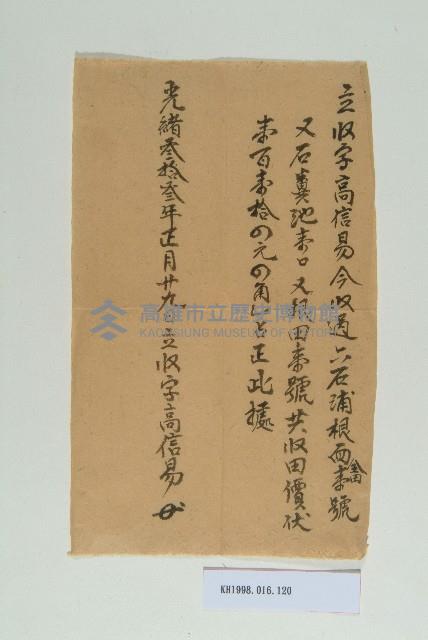 立收字高信易今收過六石浦根西壹號
又石糞池壹口又田壹號共收田價伏
壹百壹拾四元四角正此據
光緒叁拾叁年正月廿九日立收字高信易
高雄市立歷史博物館
KAOHSIUNG MUSEUM OF HISTORY
KH1998.016.120